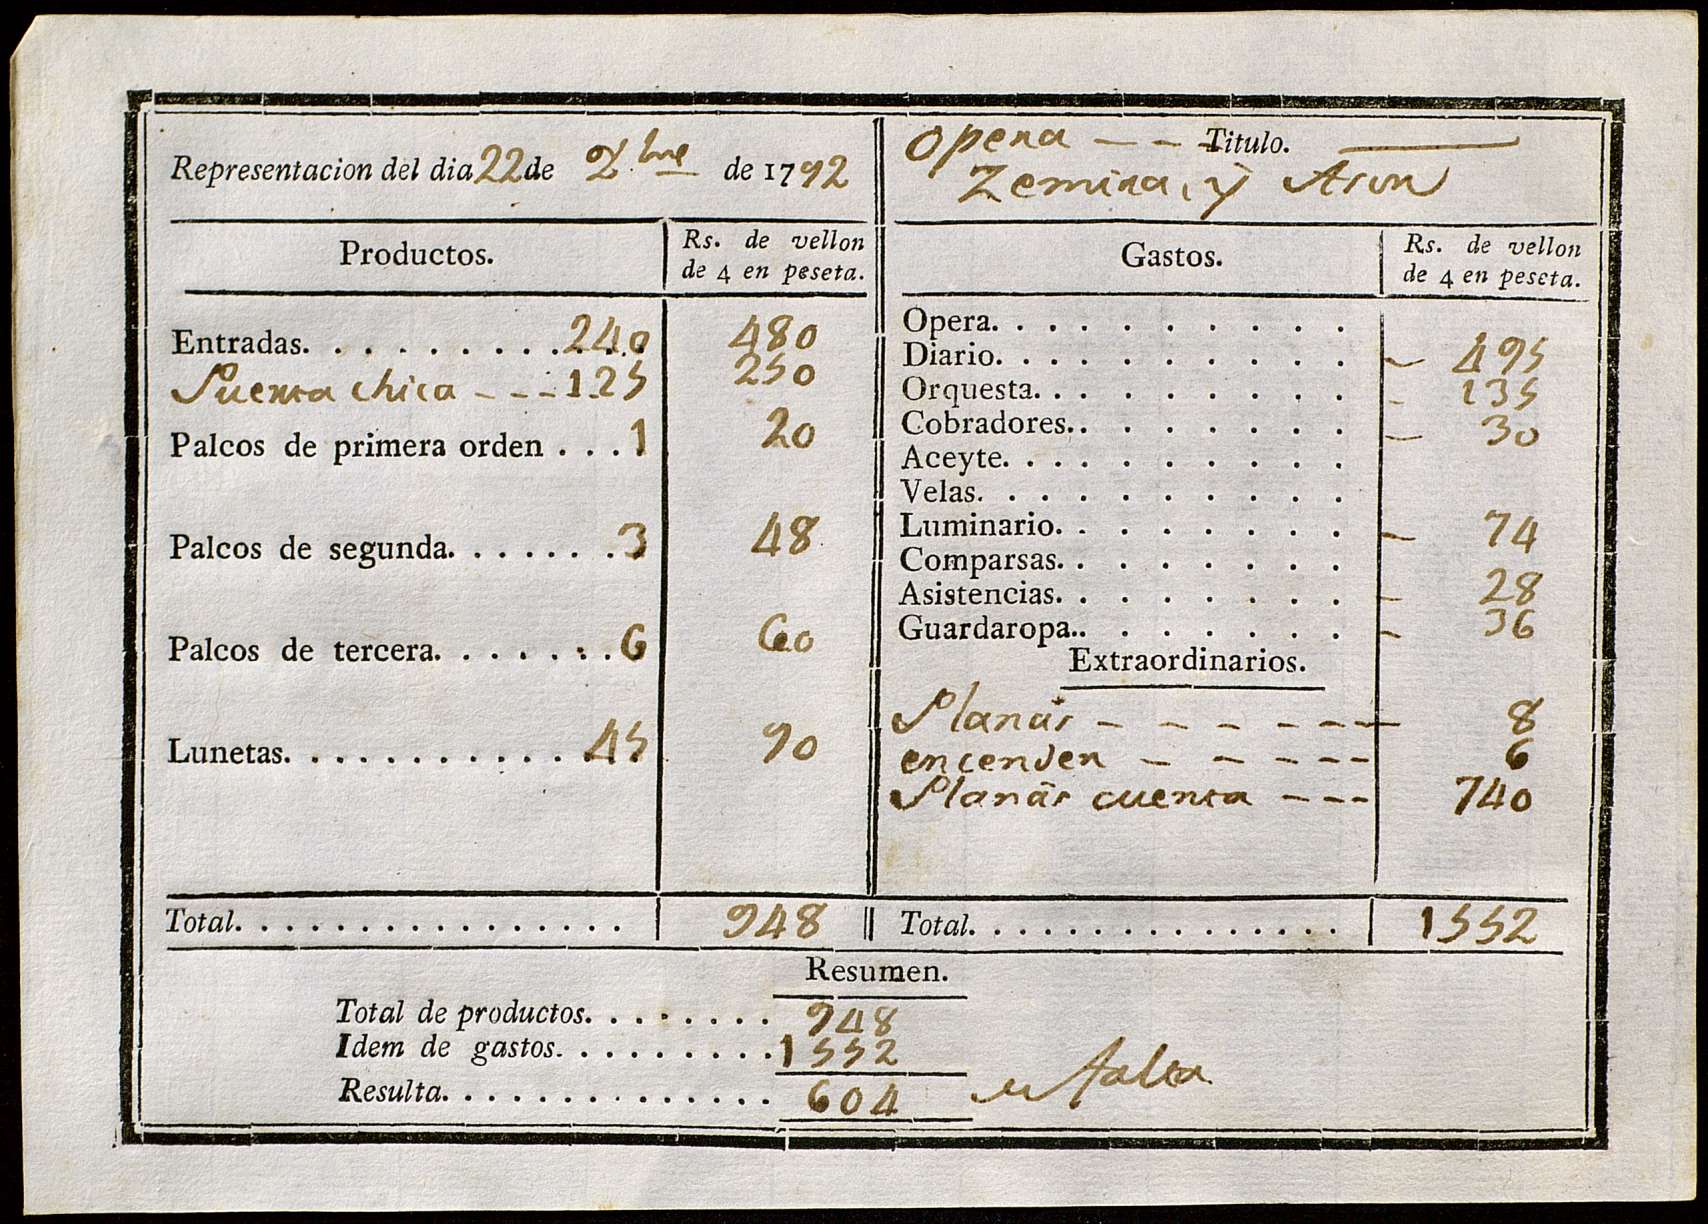 Representacion del dia 22 de de 1792
Opera - - - Titulo.
Zemira, y Asor
Productos.
Rs. de vellon
de 4 en peseta.
Entradas. . . . . . . . . . . 240 480
Puerta chica - - - 125 250
Palcos de primera orden . . . 1 20
Palcos de segunda. . . . . . . 3 48
Palcos de tercera. . . . . . . 6 60
Lunetas. . . . . . . . . . . 45 90
Total. . . . . . . . . . . . . . . . . 948
Gastos.
Rs. de vellon
de 4 en peseta.
Opera. . . . . . . . . .
Diario. . . . . . . . . . - 495
Orquesta. . . . . . . . . - 135
Cobradores.. . . . . . . - 30
Aceyte. . . . . . . . . .
Velas. . . . . . . . . .
Luminario. . . . . . . . - 74
Comparsas. . . . . . . .
Asistencias. . . . . . . . - 28
Guardaropa.. . . . . . . - 36
Extraordinarios.
Planás - - - - - - - 8
encender - - - - - - 6
Planás cuenta - - - 740
Total. . . . . . . . . . . . . . . . 1552
Resumen.
Total de productos. . . . . . . . 948
Idem de gastos. . . . . . . . . . 1552
Resulta. . . . . . . . . . . . . . . 604 falta